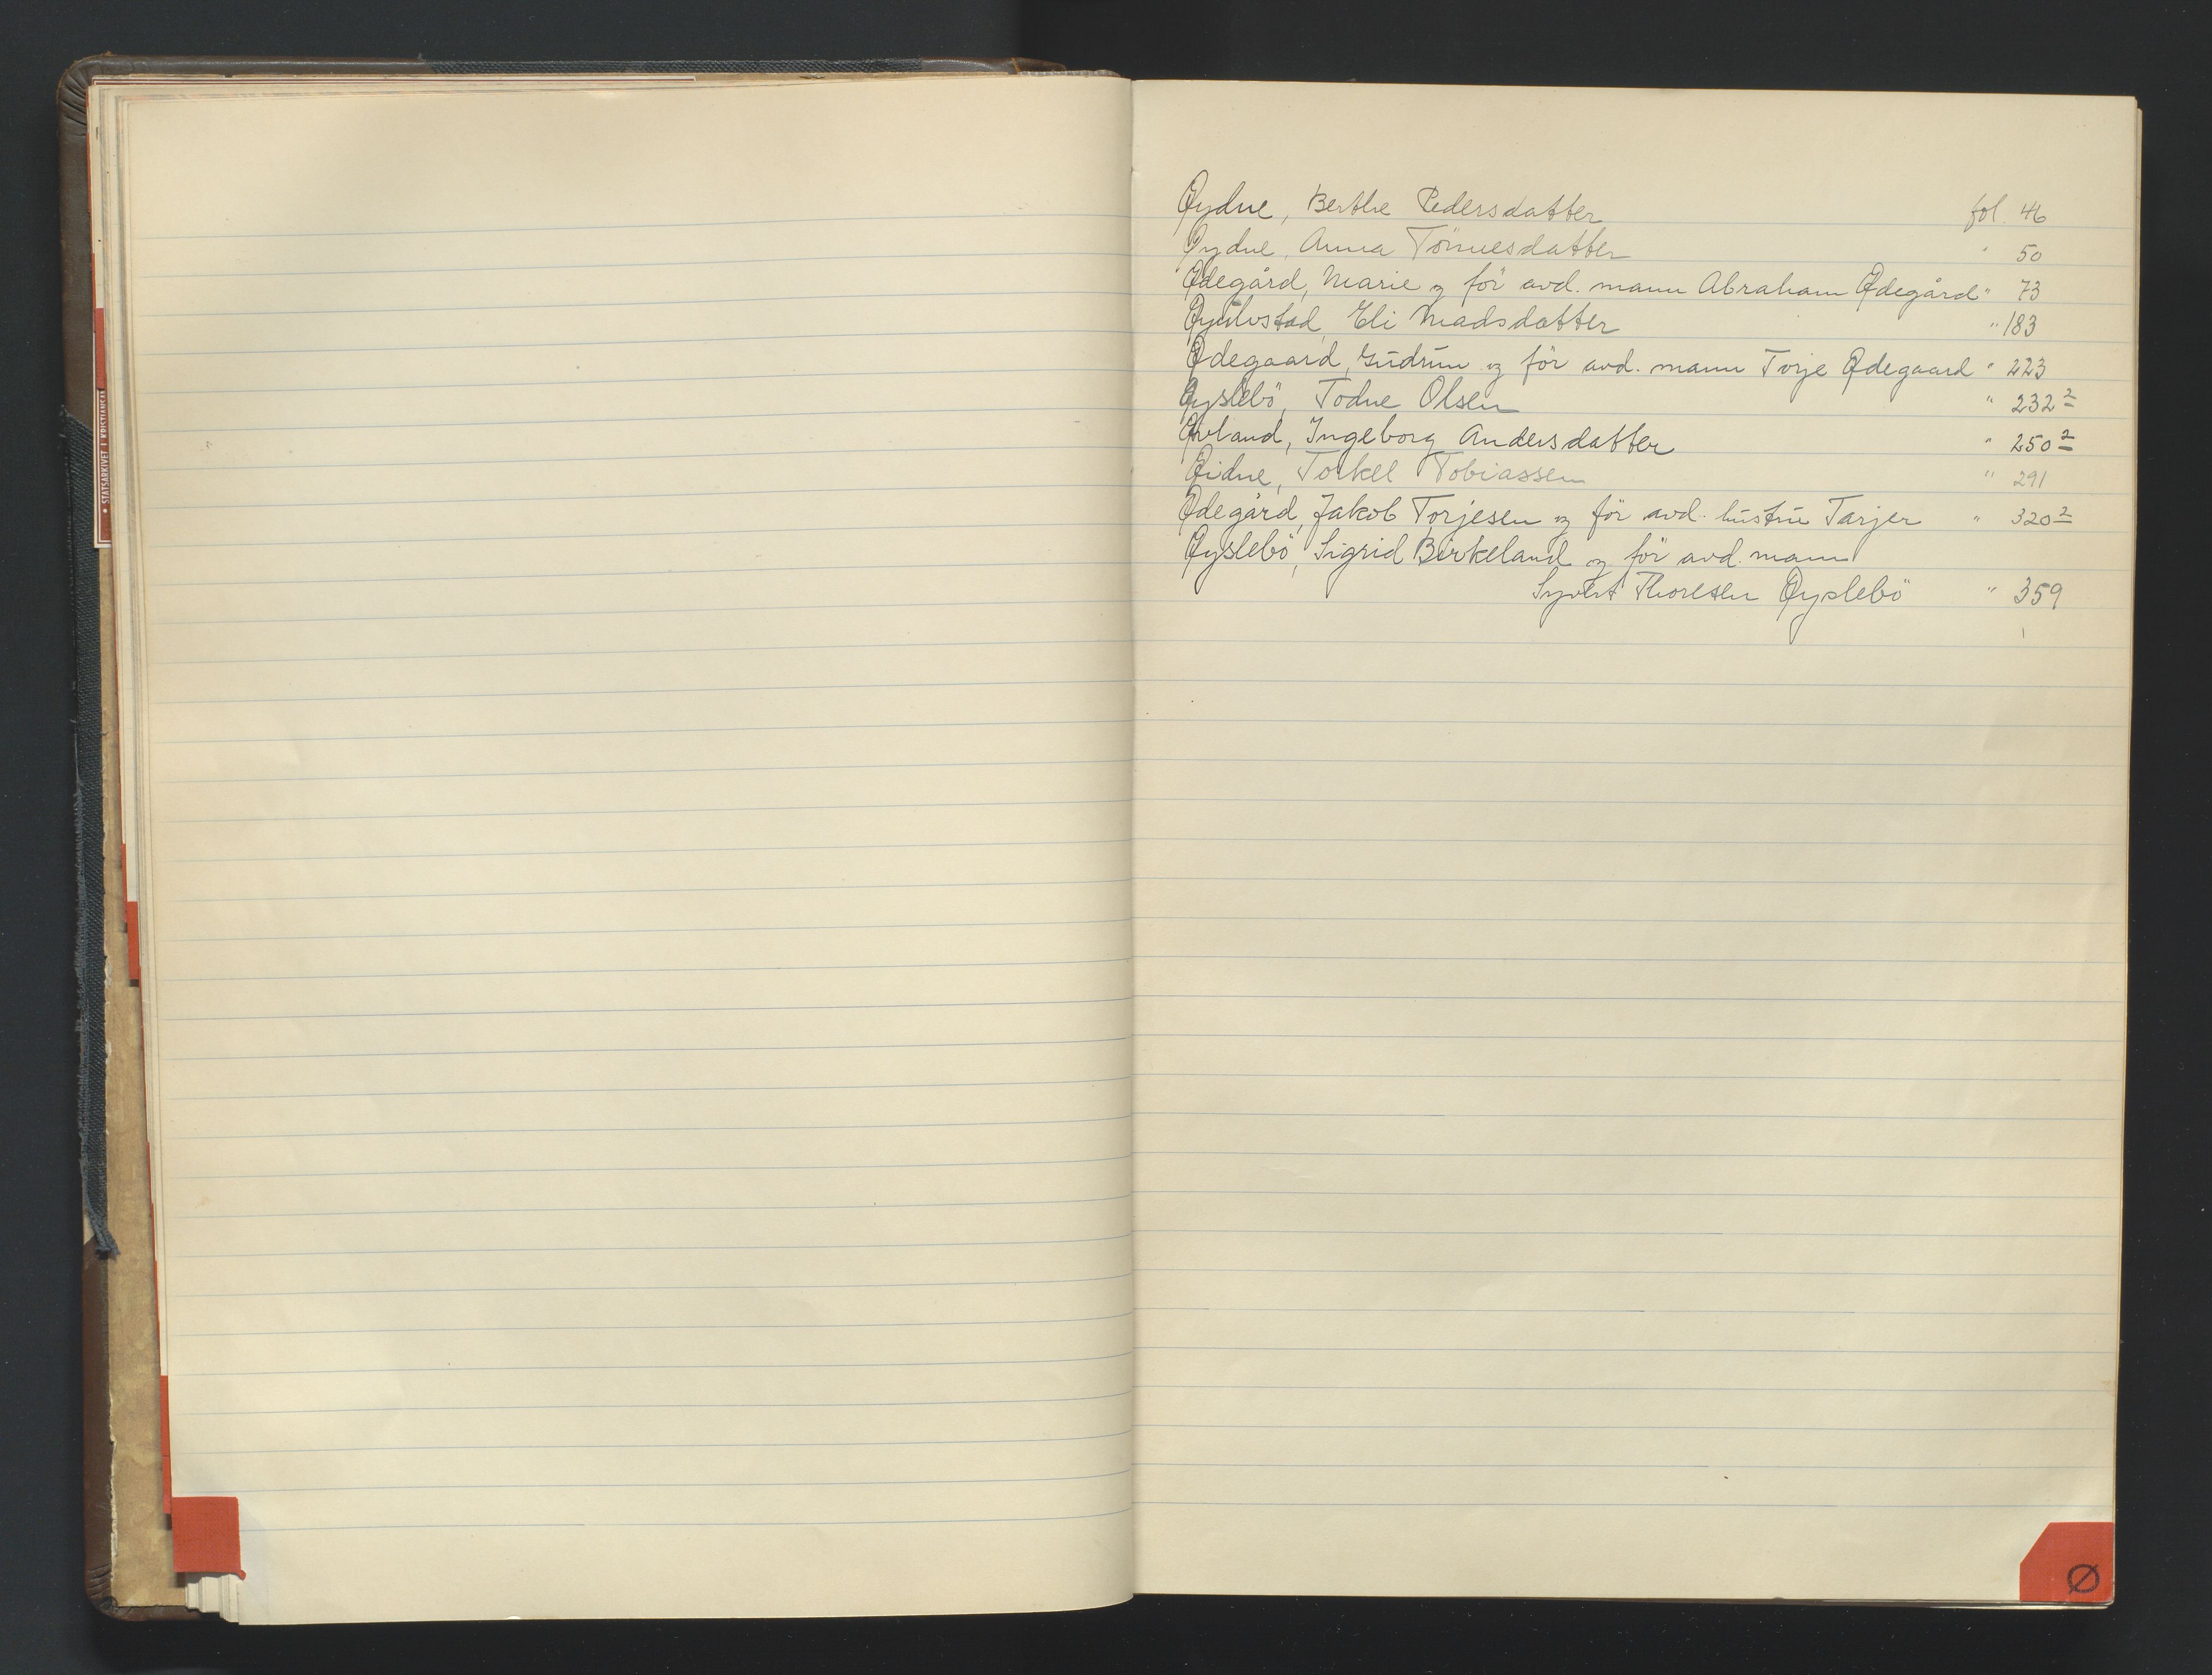 • STATSARKIVET I KRISTIANSAND
Øydne, Berthe Pedersdatter fol. 46
Øydne, Anna Tönnesdatter " 50
Ødegård, Marie og för avd. mann Abraham Ødegård " 73
Eli Madsdatter " 183
Ødegaard, Gudrun og för avd. mann Torje Ødegaard " 223
Øyslebö, Todne Olsen " 232 2
Øvland, Ingeborg Andersdatter " 250 2
Øidne, Torkel Tobiassen " 291
Ødegård, Jakob Torjesen og för avd. hustru Tarjer " 320 2
Øyslebö, Sigrid Birkeland og för avd. mann
Syvert Thoresen Øyslebö " 359
Ø